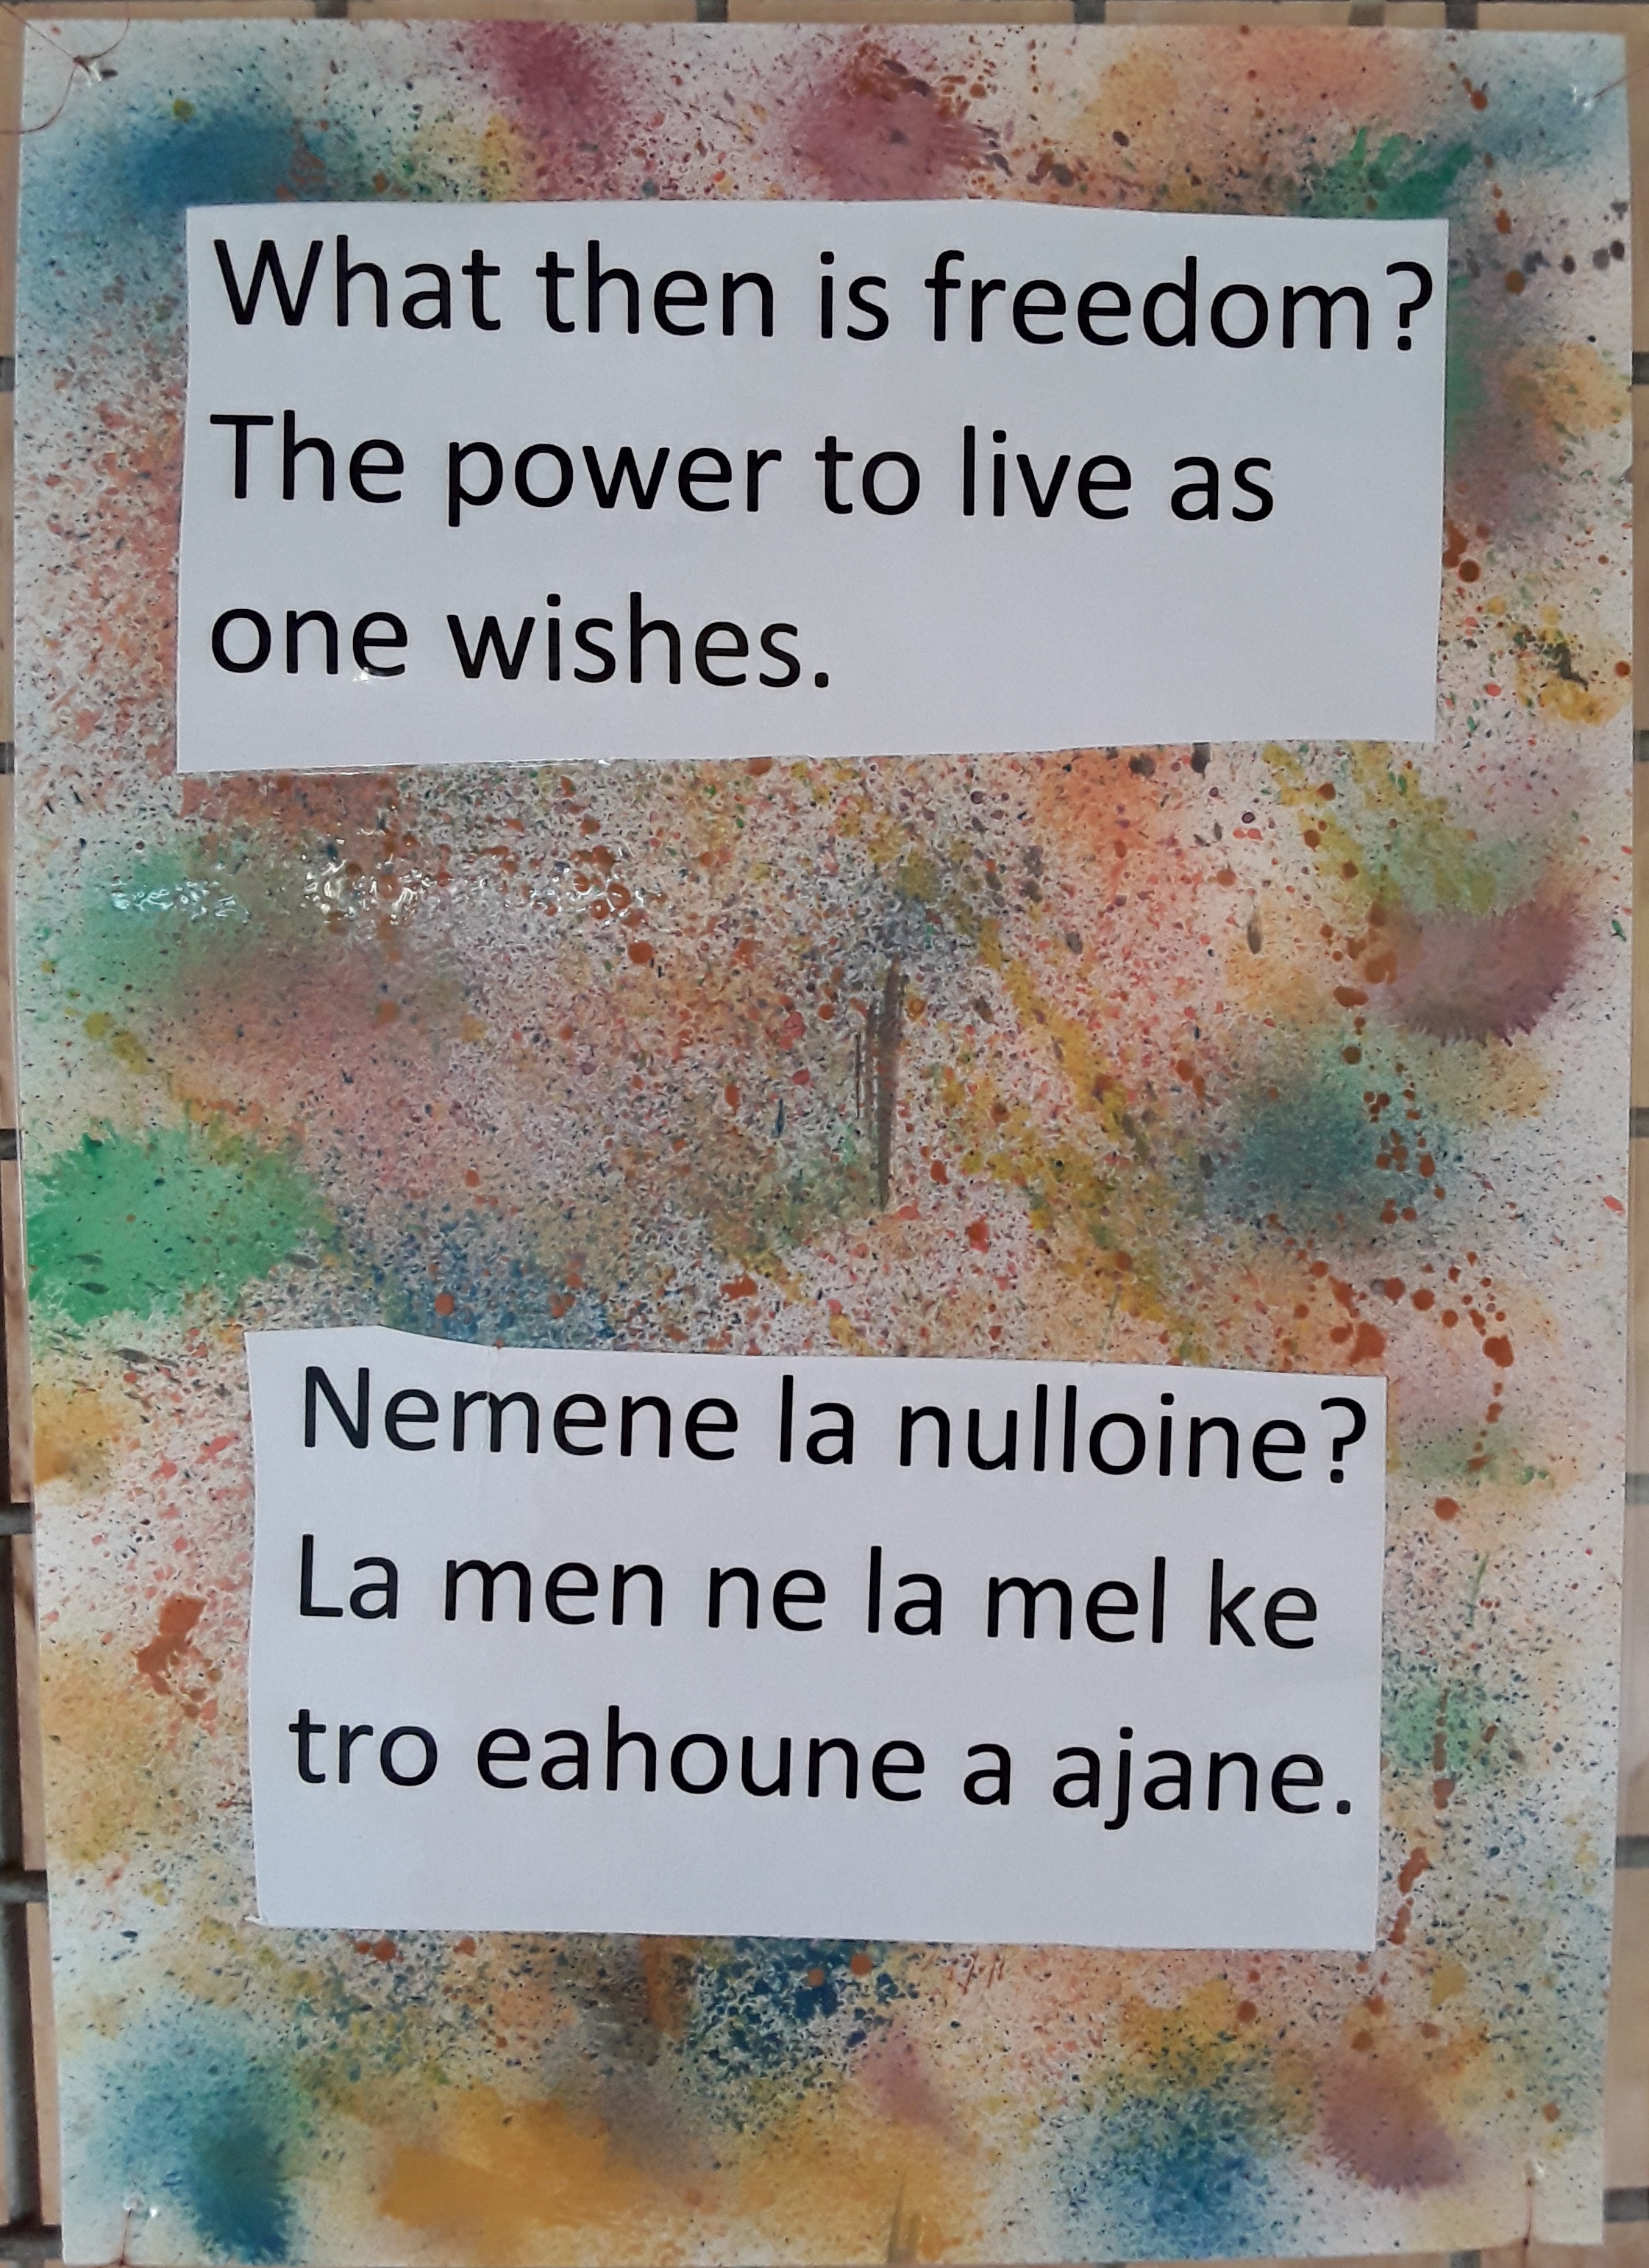 What then is freedom?
The power to live as
one wishes.
Nemene la nulloine?
La men ne la mel ke
tro eahoune a ajane.